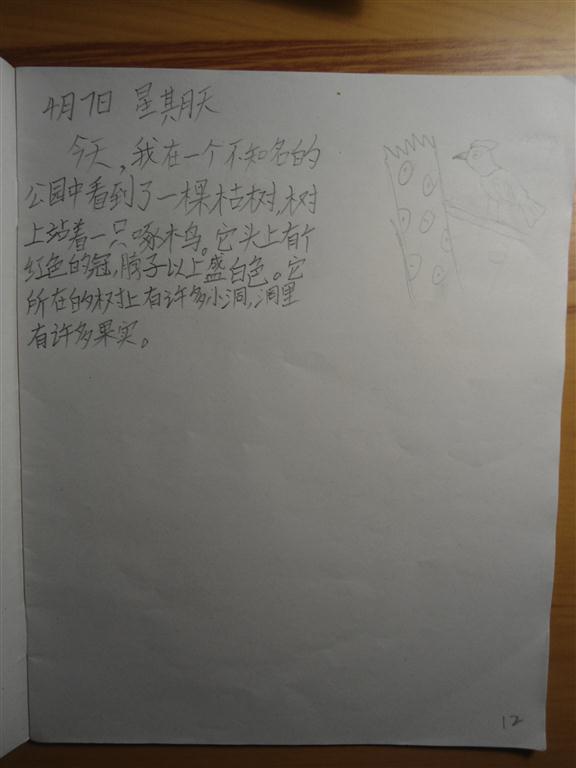 4月7日 星期天
今天,我在一个不知名的
公园中看到了一棵枯树,树
上站着一只啄木鸟。它头上有个
红色的冠,脖子以上盛白色。它
所在的树上有许多小洞,洞里
有许多果实。
12